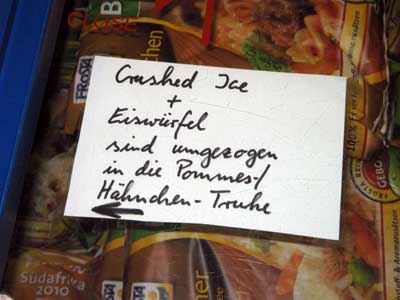 Crushed Ice
+
Eiswürfel
sind umgezogen
in die Pommes-/
Hähnchen-Truhe
FROSTA
Südafrika
2010
100%
FROSTA
GEBO